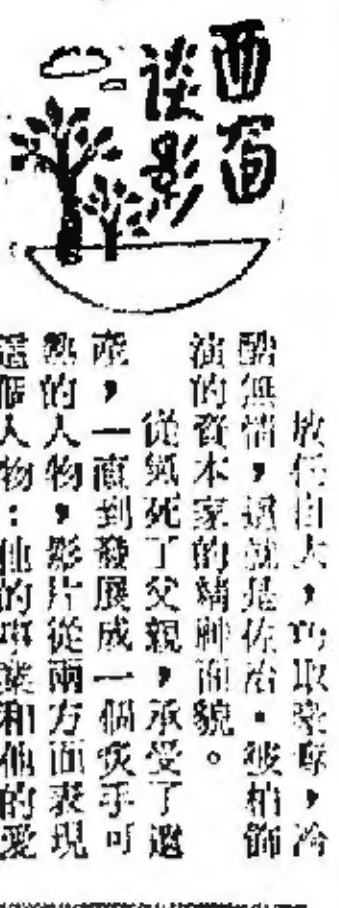 西窗
談影
放任自大，巧取豪奪，冷
酷無情，這就是佐治·彼柏飾
演的資本家的精神面貌。
從氣死了父親，承受了遺
產，一直到發展成一個炙手可
熱的人物，影片從兩方面表現
這個人物：他的事業和他的愛